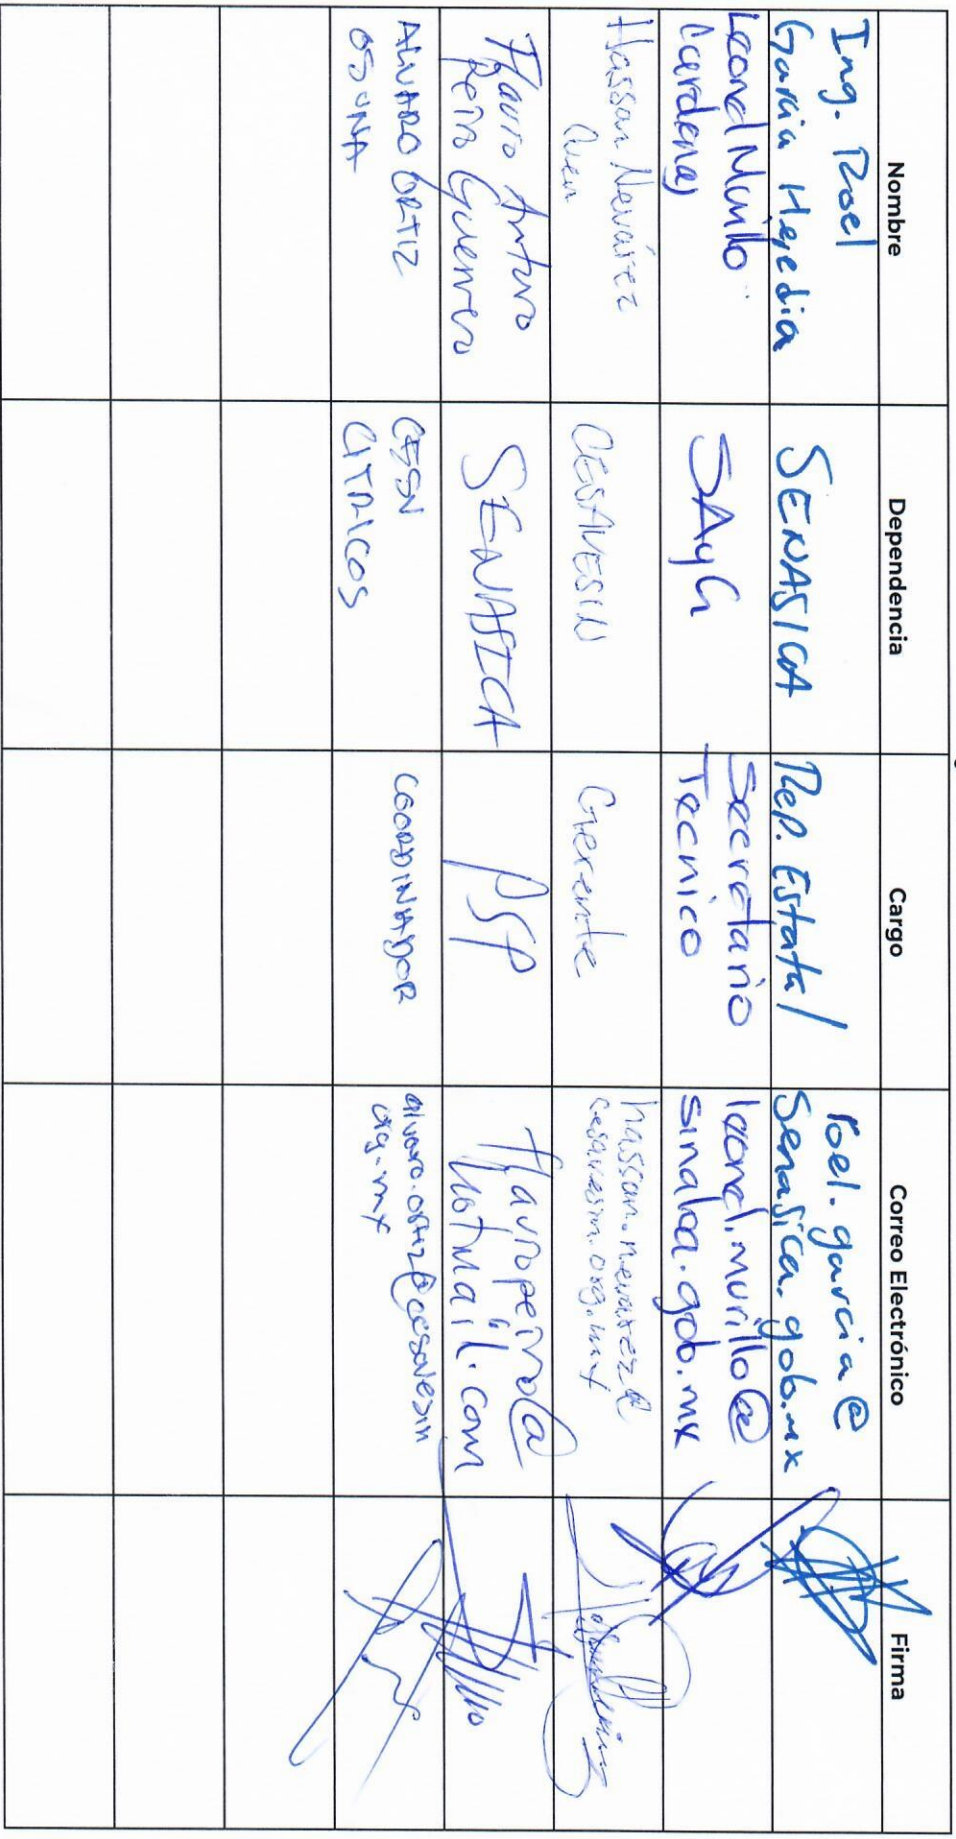 Nombre
Dependencia
Cargo
Correo Electrónico
Firma
Ing. Roel
García Heredia
SENASICA
Rep. Estatal
roel.garcia@
senasica.gob.mx
Leonel Murillo
Cardenas
SAyG
Secretario
Tecnico
leonel.murillo@
sinaloa.gob.mx
Hassan Nevárez
CESAVESIN
Gerente
hassan.nevarez@
cesavesin.org.mx
Flavio Arturo
Peiro Guerrero
SENASICA
PSP
flavropeiro@
hotmail.com
ALVARO ORTIZ
OSUNA
CESSV
CITRICOS
COORDINADOR
alvaro.ortiz@cesavesin
org.mx